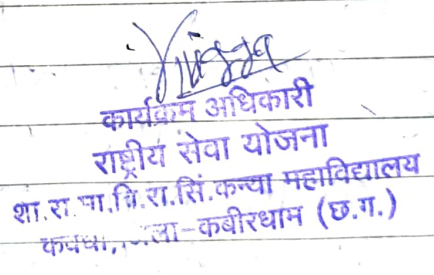 कार्यक्रम अधिकारी
राष्ट्रीय सेवा योजना
शा.रा.मा.वि.रा.सिं.कन्या महाविद्यालय
कवर्धा, जिला-कबीरधाम (छ.ग.)